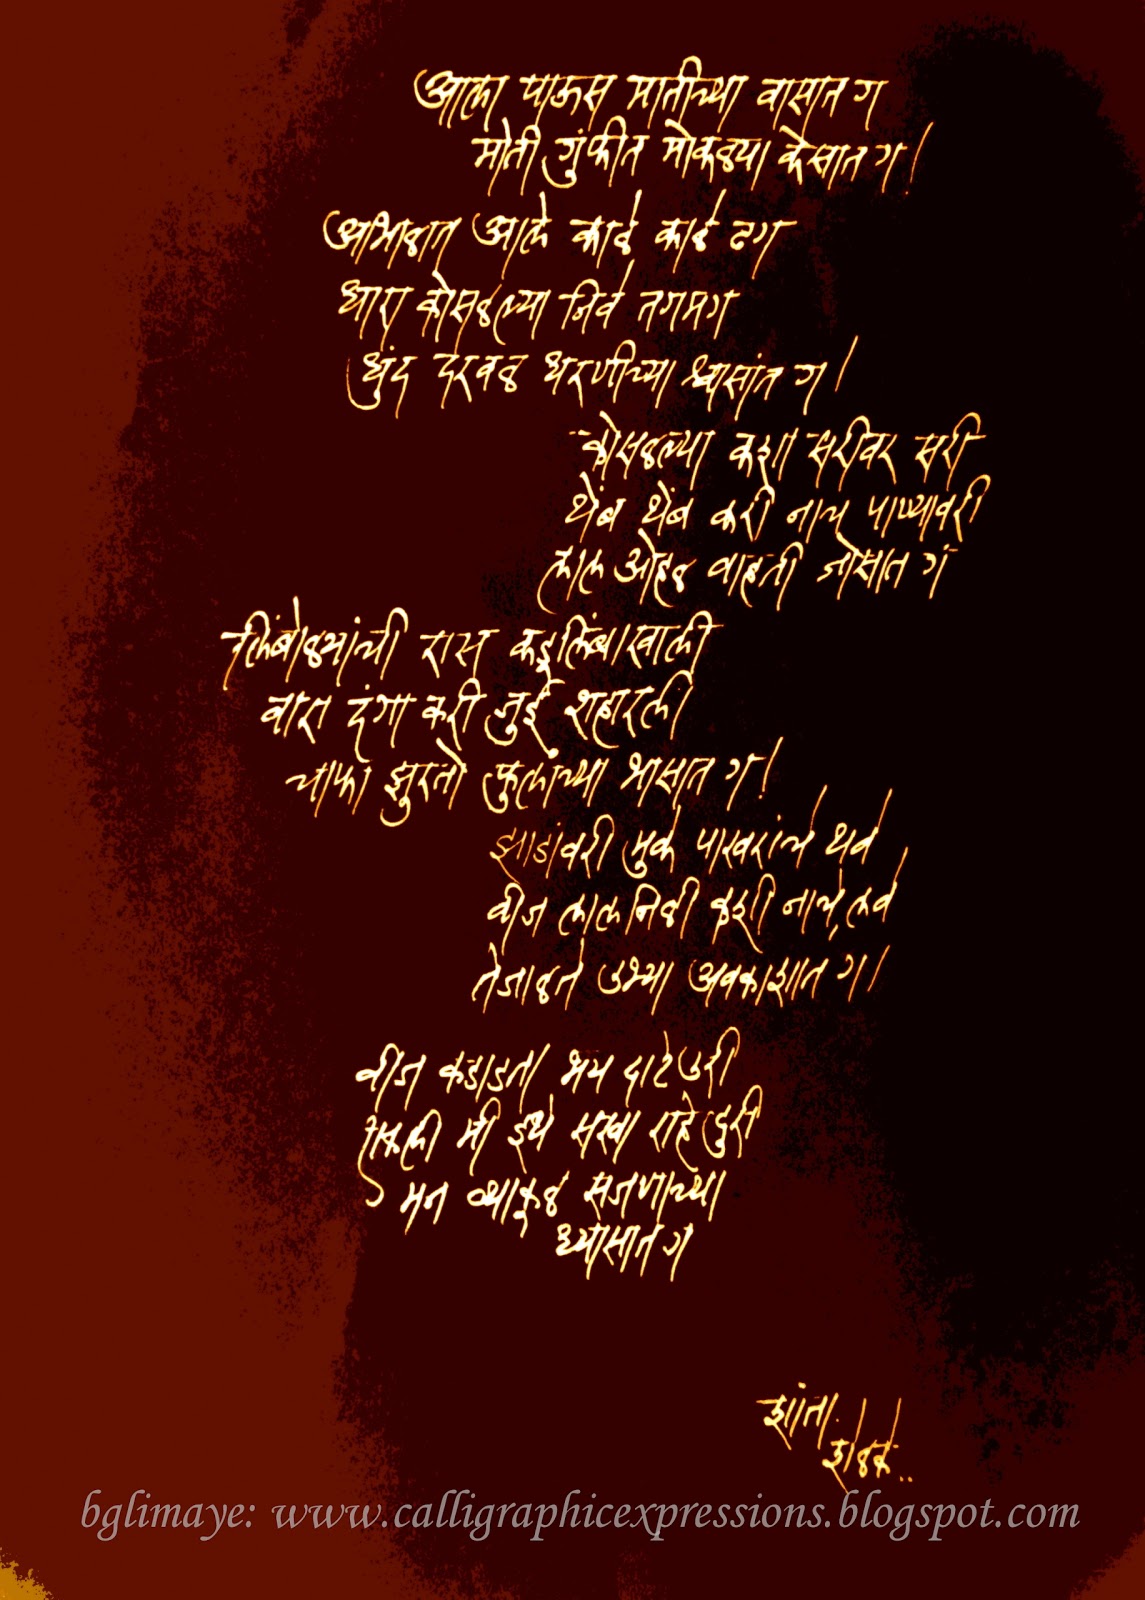 आला पाऊस मातीच्या वासात ग
मोती गुंफीत मोकळ्या केसात ग!
आभाळात आले काळे काळे ढग
धारा कोसळल्या निवे तगमग
धुंद दरवळ धरणीच्या श्वासांत ग!
कोसळल्या कशा सरीवर सरी
थेंब थेंब करी नाच पाण्यावरी
लाल ओहळ वाहती जोसात ग
लिंबोळ्यांची रास कडूलिंबाखाली
वारा दंगा करी जुई शहारली
चाफा झुरतो फुलांच्या भासात ग!
झाडांवरी मुके पाखरांचे थवे
वीज लाल निळी कशी नाचे, लवे
तेजाळते उभ्या अवकाशात ग!
वीज कडाडता भय दाटे उरी
एकली मी इथे सखा राहे दुरी
मन व्याकूळ सजणाच्या
ध्यासात ग
शांता
शेळके..
bglimaye: www.calligraphicexpressions.blogspot.com